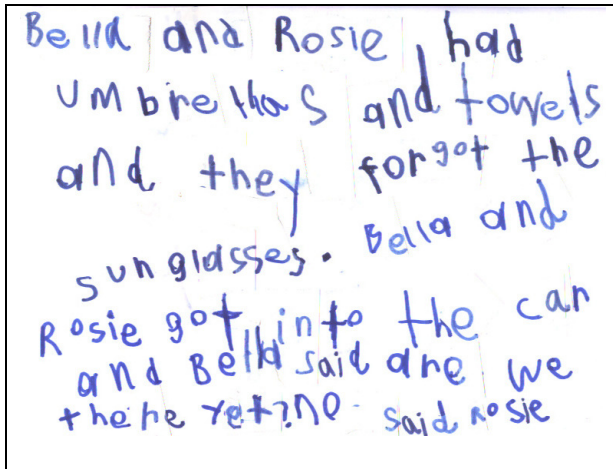 Bella and Rosie had
umbrethas and towels
and they forgot the
sunglasses. Bella and
Rosie got into the car
and Bella said are we
there yet? no. said Rosie